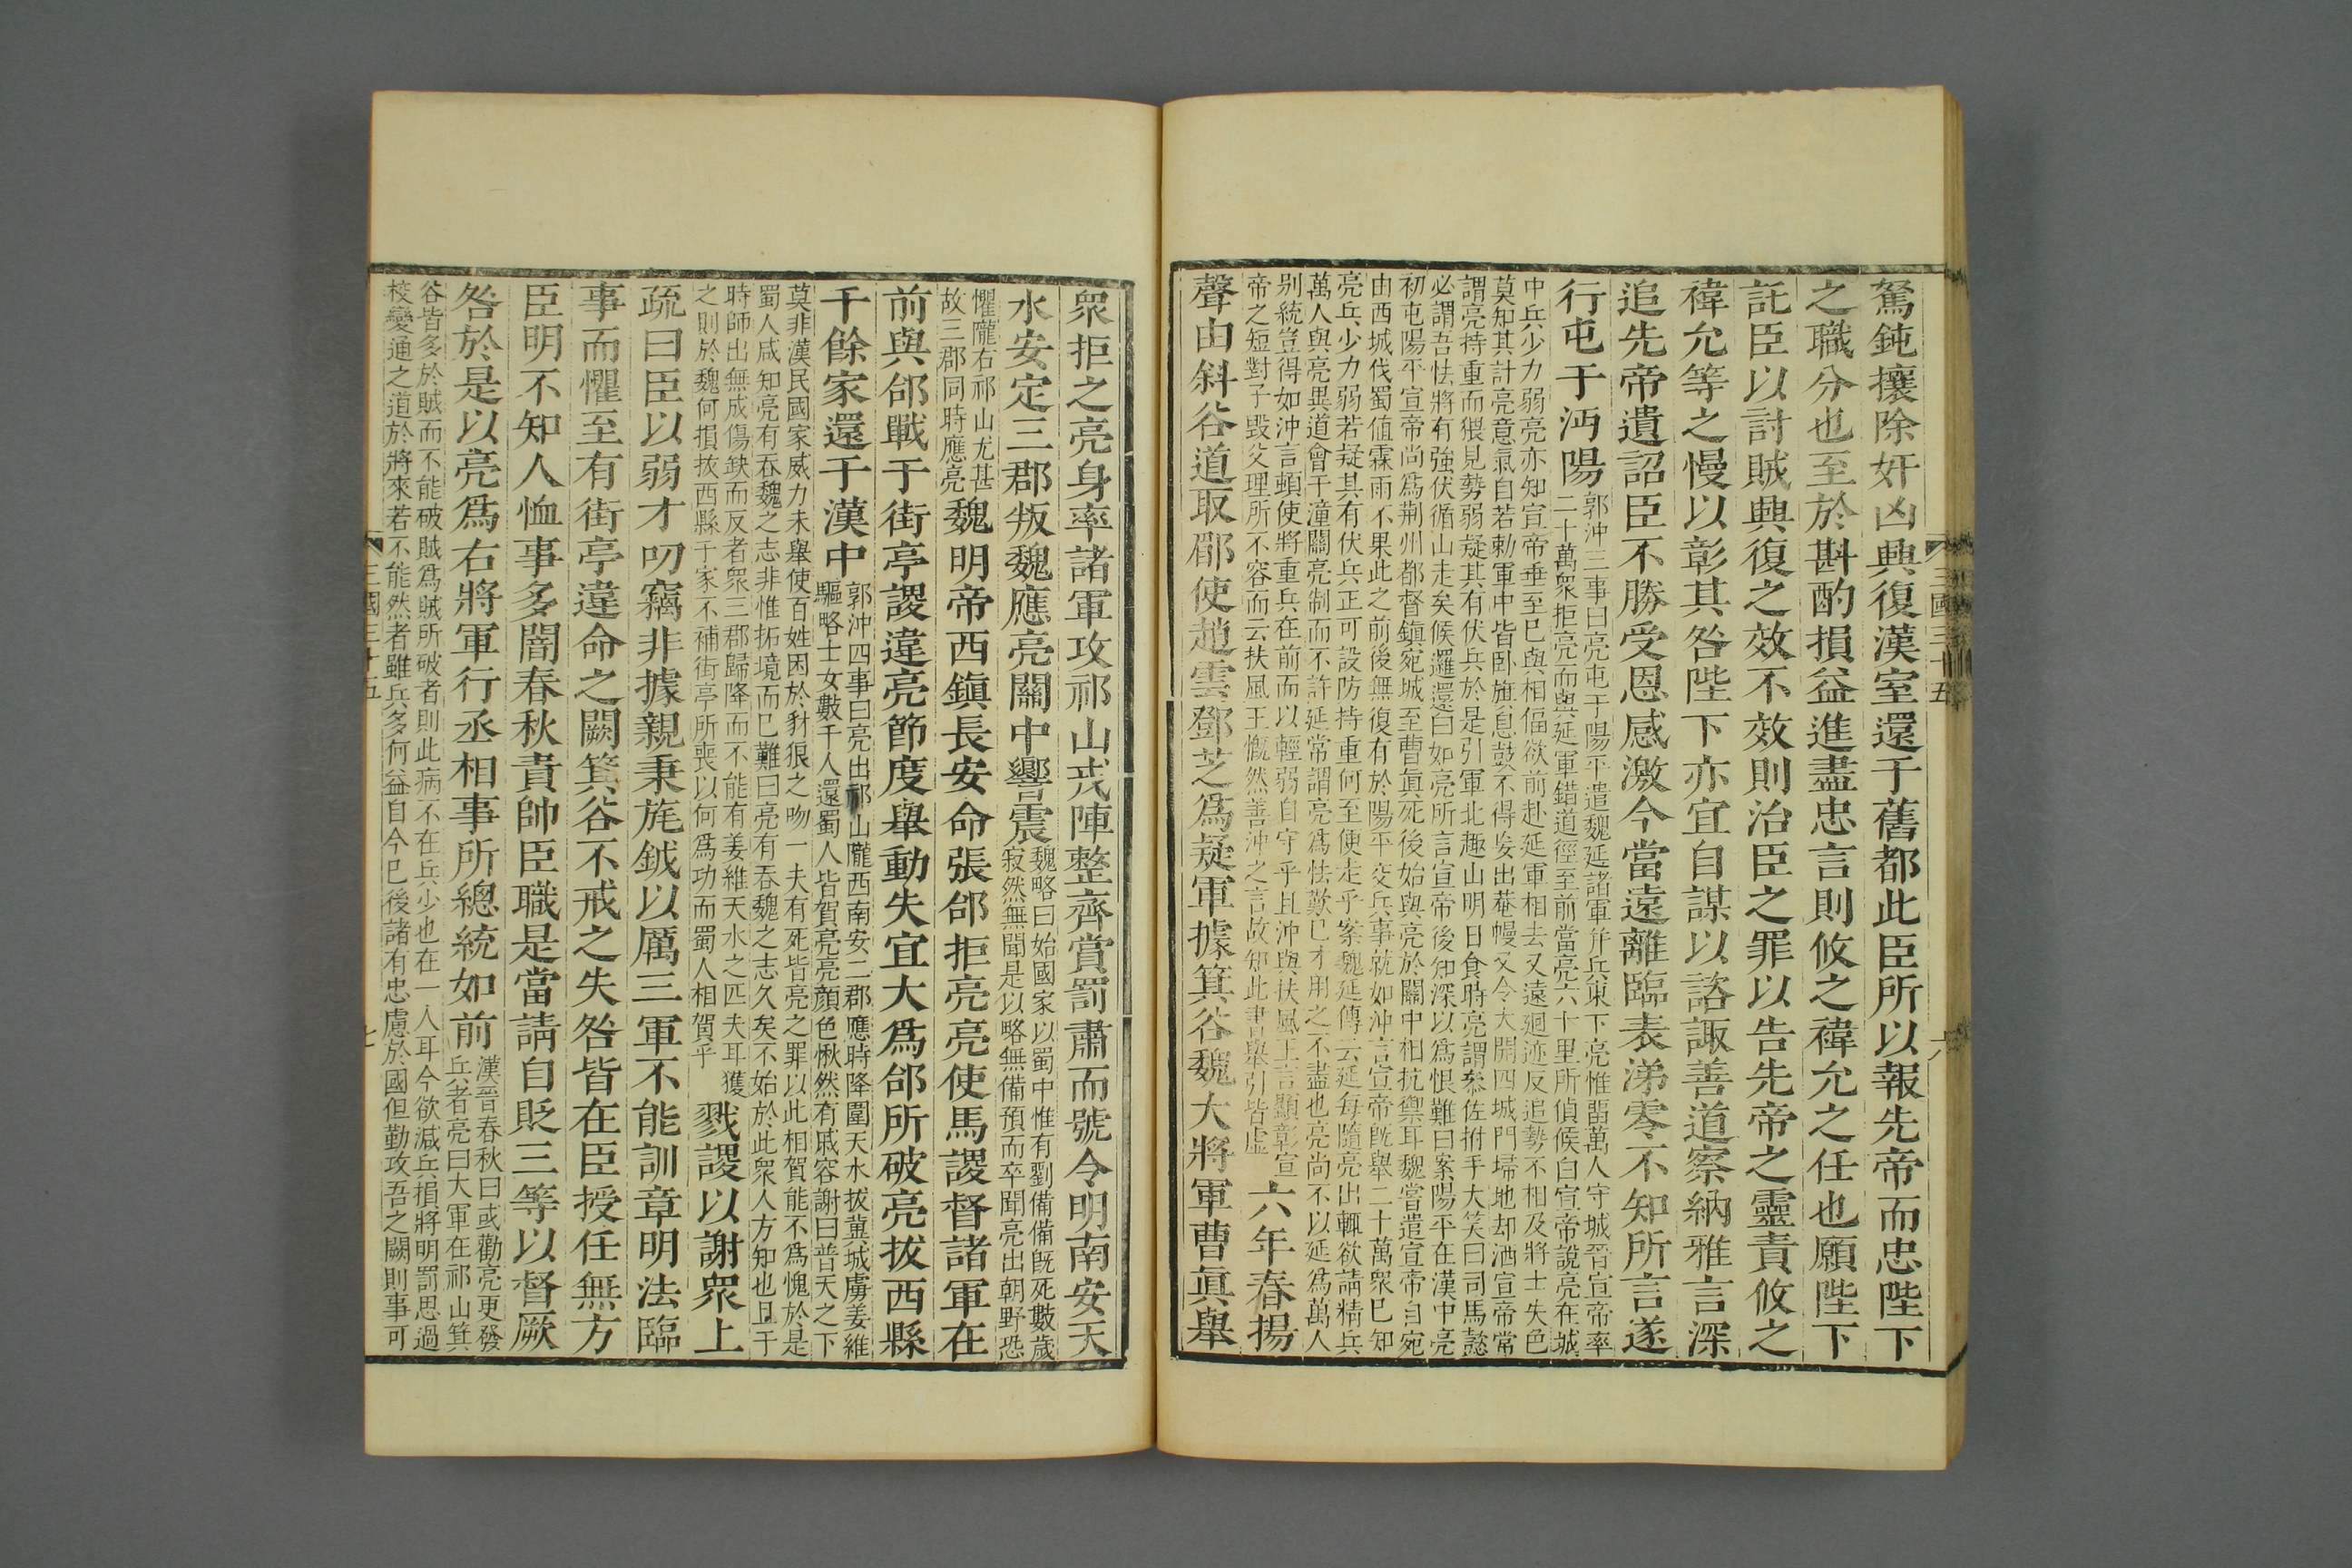 駑鈍攘除奸凶興復漢室還于舊都此臣所以報先帝而忠陛下
之職分也至於斟酌損益進盡忠言則攸之禕允之任也願陛下
託臣以討賊興復之效不效則治臣之罪以告先帝之靈責攸之
禕允等之慢以彰其咎陛下亦宜自謀以諮諏善道察納雅言深
追先帝遺詔臣不勝受恩感激今當遠離臨表涕零不知所言遂
行屯于沔陽
郭沖三事曰亮屯于陽平遣魏延諸軍并兵東下亮惟留萬人守城晉宣帝率
二十萬衆拒亮而與延軍錯道徑至前當亮六十里所偵候白宣帝說亮在城
中兵少力弱亮亦知宣帝垂至已與相偪欲前赴延軍相去又遠迴迹反追勢不相及將士失色
莫知其計亮意氣自若勅軍中皆卧旗息鼓不得妄出菴幔又令大開四城門埽地却洒宣帝常
謂亮持重而猥見勢弱疑其有伏兵於是引軍北趣山明日食時亮謂參佐拊手大笑曰司馬懿
必謂吾怯將有強伏循山走矣候邏還白如亮所言宣帝後知深以爲恨難曰案陽平在漢中亮
初屯陽平宣帝尚爲荆州都督鎮宛城至曹眞死後始與亮於關中相抗禦耳魏嘗遣宣帝自宛
由西城伐蜀值霖雨不果此之前後無復有於陽平交兵事就如沖言宣帝旣舉二十萬衆已知
亮兵少力弱若疑其有伏兵正可設防持重何至便走乎案魏延傳云延每隨亮出輒欲請精兵
萬人與亮異道會于潼關亮制而不許延常謂亮爲怯歎已才用之不盡也亮尚不以延爲萬人
别統豈得如沖言頓使將重兵在前而以輕弱自守乎且沖與扶風王言顯彰宣
帝之短對子毀父理所不容而云扶風王慨然善沖之言故知此書舉引皆虛
六年春揚
聲由斜谷道取郿使趙雲鄧芝爲疑軍據箕谷魏大將軍曹眞舉
三國三十五
六
衆拒之亮身率諸軍攻祁山戎陣整齊賞罰肅而號令明南安天
水安定三郡叛魏應亮關中響震
魏略曰始國家以蜀中惟有劉備備旣死數歲
寂然無聞是以略無備預而卒聞亮出朝野恐
懼隴右祁山尤甚
故三郡同時應亮
魏明帝西鎮長安命張郃拒亮亮使馬謖督諸軍在
前與郃戰于街亭謖違亮節度舉動失宜大爲郃所破亮拔西縣
千餘家還于漢中
郭沖四事曰亮出祁山隴西南安二郡應時降圍天水拔冀城虜姜維
驅略士女數千人還蜀人皆賀亮亮顔色愀然有戚容謝曰普天之下
莫非漢民國家威力未舉使百姓困於豺狼之吻一夫有死皆亮之罪以此相賀能不爲愧於是
蜀人咸知亮有吞魏之志非惟拓境而已難曰亮有吞魏之志久矣不始於此衆人方知也且于
時師出無成傷缺而反者衆三郡歸降而不能有姜維天水之匹夫耳獲
之則於魏何損拔西縣千家不補街亭所喪以何爲功而蜀人相賀乎
戮謖以謝衆上
疏曰臣以弱才叨竊非據親秉旄鉞以厲三軍不能訓章明法臨
事而懼至有街亭違命之闕箕谷不戒之失咎皆在臣授任無方
臣明不知人恤事多闇春秋責帥臣職是當請自貶三等以督厥
咎於是以亮爲右將軍行丞相事所總統如前
漢晉春秋曰或勸亮更發
兵者亮曰大軍在祁山箕
谷皆多於賊而不能破賊爲賊所破者則此病不在兵少也在一人耳今欲減兵損將明罰思過
校變通之道於將來若不能然者雖兵多何益自今已後諸有忠慮於國但勤攻吾之闕則事可
三國三十五
七